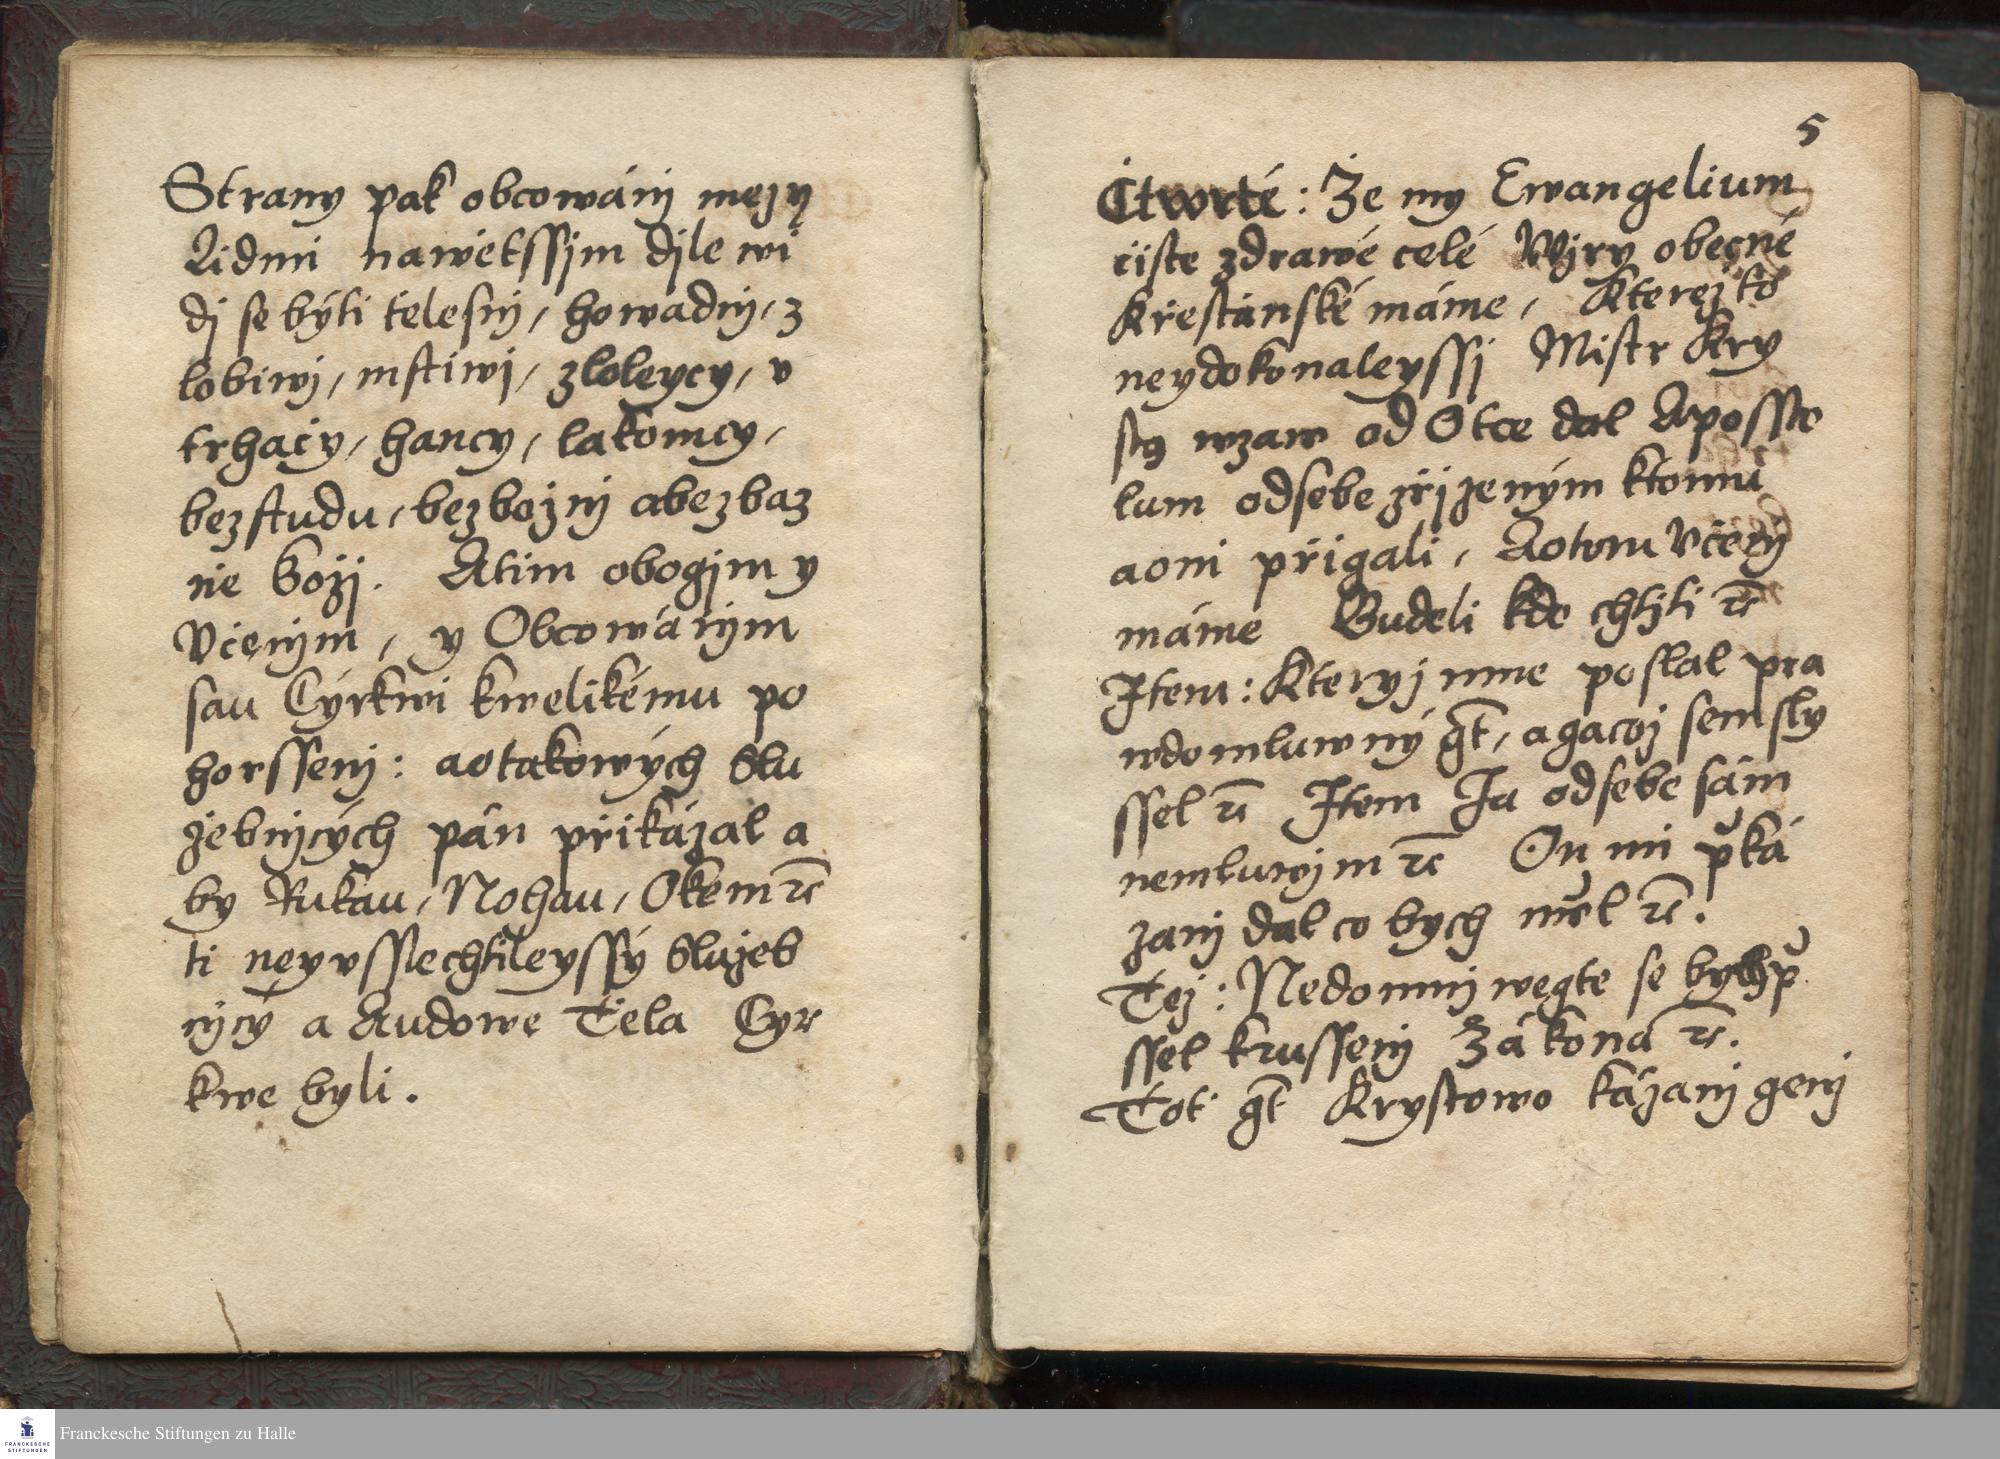 Strany pak obcowánj mezy
Lidmi nawětssjm djle wi
dj se býti tělesnj, howadnj, z
lobiwj, mstiwj, zloleycy, v
trhačy, hancy, lakomcy,
bezstudu, bezbožnj abezbaz
ně Božj. Atim obogjm y
Včenjm, y Obcowánjm
sau Cýrkwi kwelikému po
horssenj: aotakowých Slu
žebnjcých pán přikázal a
by Rukau, Nohau, Okem ꝛc
ti neyvsslechtileyssý Služeb
njcý a Audowe Těla Cyr
kwe byli.
5
Čtwrté: Že my Ewangelium
čisté zdrawé celé Wjry obecné
Křestánské máme, Kterežto
neydokonaleyssj Mistr Kry
stus wzaw od Otce dal Apossto
lum odsebe zřjzeným ktomu
aoni přigali, Aotom Včenj
máme Budeli kdo chtjti ꝛc
Item: Kteryž mne poslal pra
wdomluwný gt, agacož sem sly
ssel ꝛc Item Ja odsebe sám
nemluwjm ꝛc On mi při ká
zanj dal co bych měl ꝛc.
Též: Nedomnj wegte se bych při
ssel krussenj Zákona ꝛc.
Toť gt Krystowo kázanj genž
Franckesche Stiftungen zu Halle
FRANCKESCHE
STIFTUNGEN